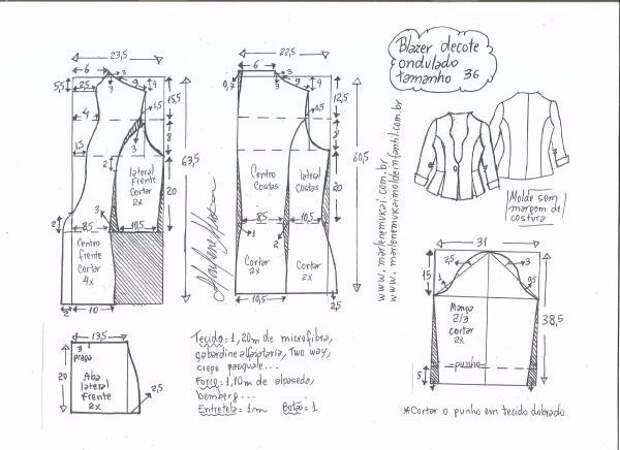 Blazer decote
ondulado
tamanho 36
23,5
6
5,5
2,5
3
3
9
4
15,5
1,5
4
8
1,5
3
2
63,5
lateral
Frente
Cortar
2x
20
3
2
8,5
10,5
Centro
frente
Cortar
4x
3
10
22,5
6
0,7
3
9
4
12,5
1,5
8
60,5
Centro
Costas
lateral
Costas
20
8,5
10,5
1
2
Cortar
2x
Cortar
2x
10,5
2,5
www.marlenemukai.com.br
www.marlenemukaimoldeinfantil.com.br
Molde sem
margem de
costura
31
15
2,5
3
0,5
Manga
2/3
cortar
2x
38,5
punho
5
*Cortar o punho em tecido dobrado
13,5
3
prega
20
Aba
lateral
Frente
2x
2,5
Tecido = 1,20m de microfibra,
gabardine alfaiataria, Two way,
crepe pasquale...
Forro = 1,10m de alpaseda,
bemberg...
Entretela = 1m Botão = 1